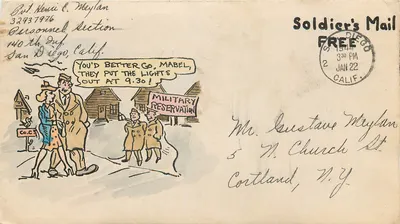 Pvt. Henri C. Meylan
32937976
Personnel Section
140th Inf.
San Diego, Calif.
Soldier's Mail
FREE
SAN DIEGO
2
3 30 PM
JAN 22
CALIF.
YOU'D BETTER GO, MABEL,
THEY PUT THE LIGHTS
OUT AT 9:30!
MILITARY
RESERVATION
CO.C
Mr. Gustave Meylan
5 N. Church St.
Cortland, N.Y.